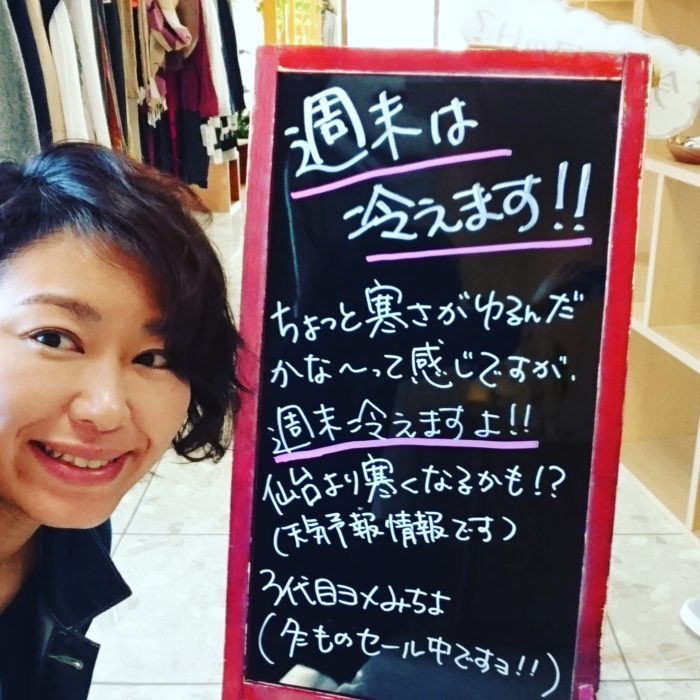 週末は
冷えます!!
ちょっと寒さがゆるんだ
かな〜って感じですが、
週末冷えますよ!!
仙台より寒くなるかも!?
(天気予報情報です)
3代目ヨメみちよ
(冬ものセール中ですョ!!)